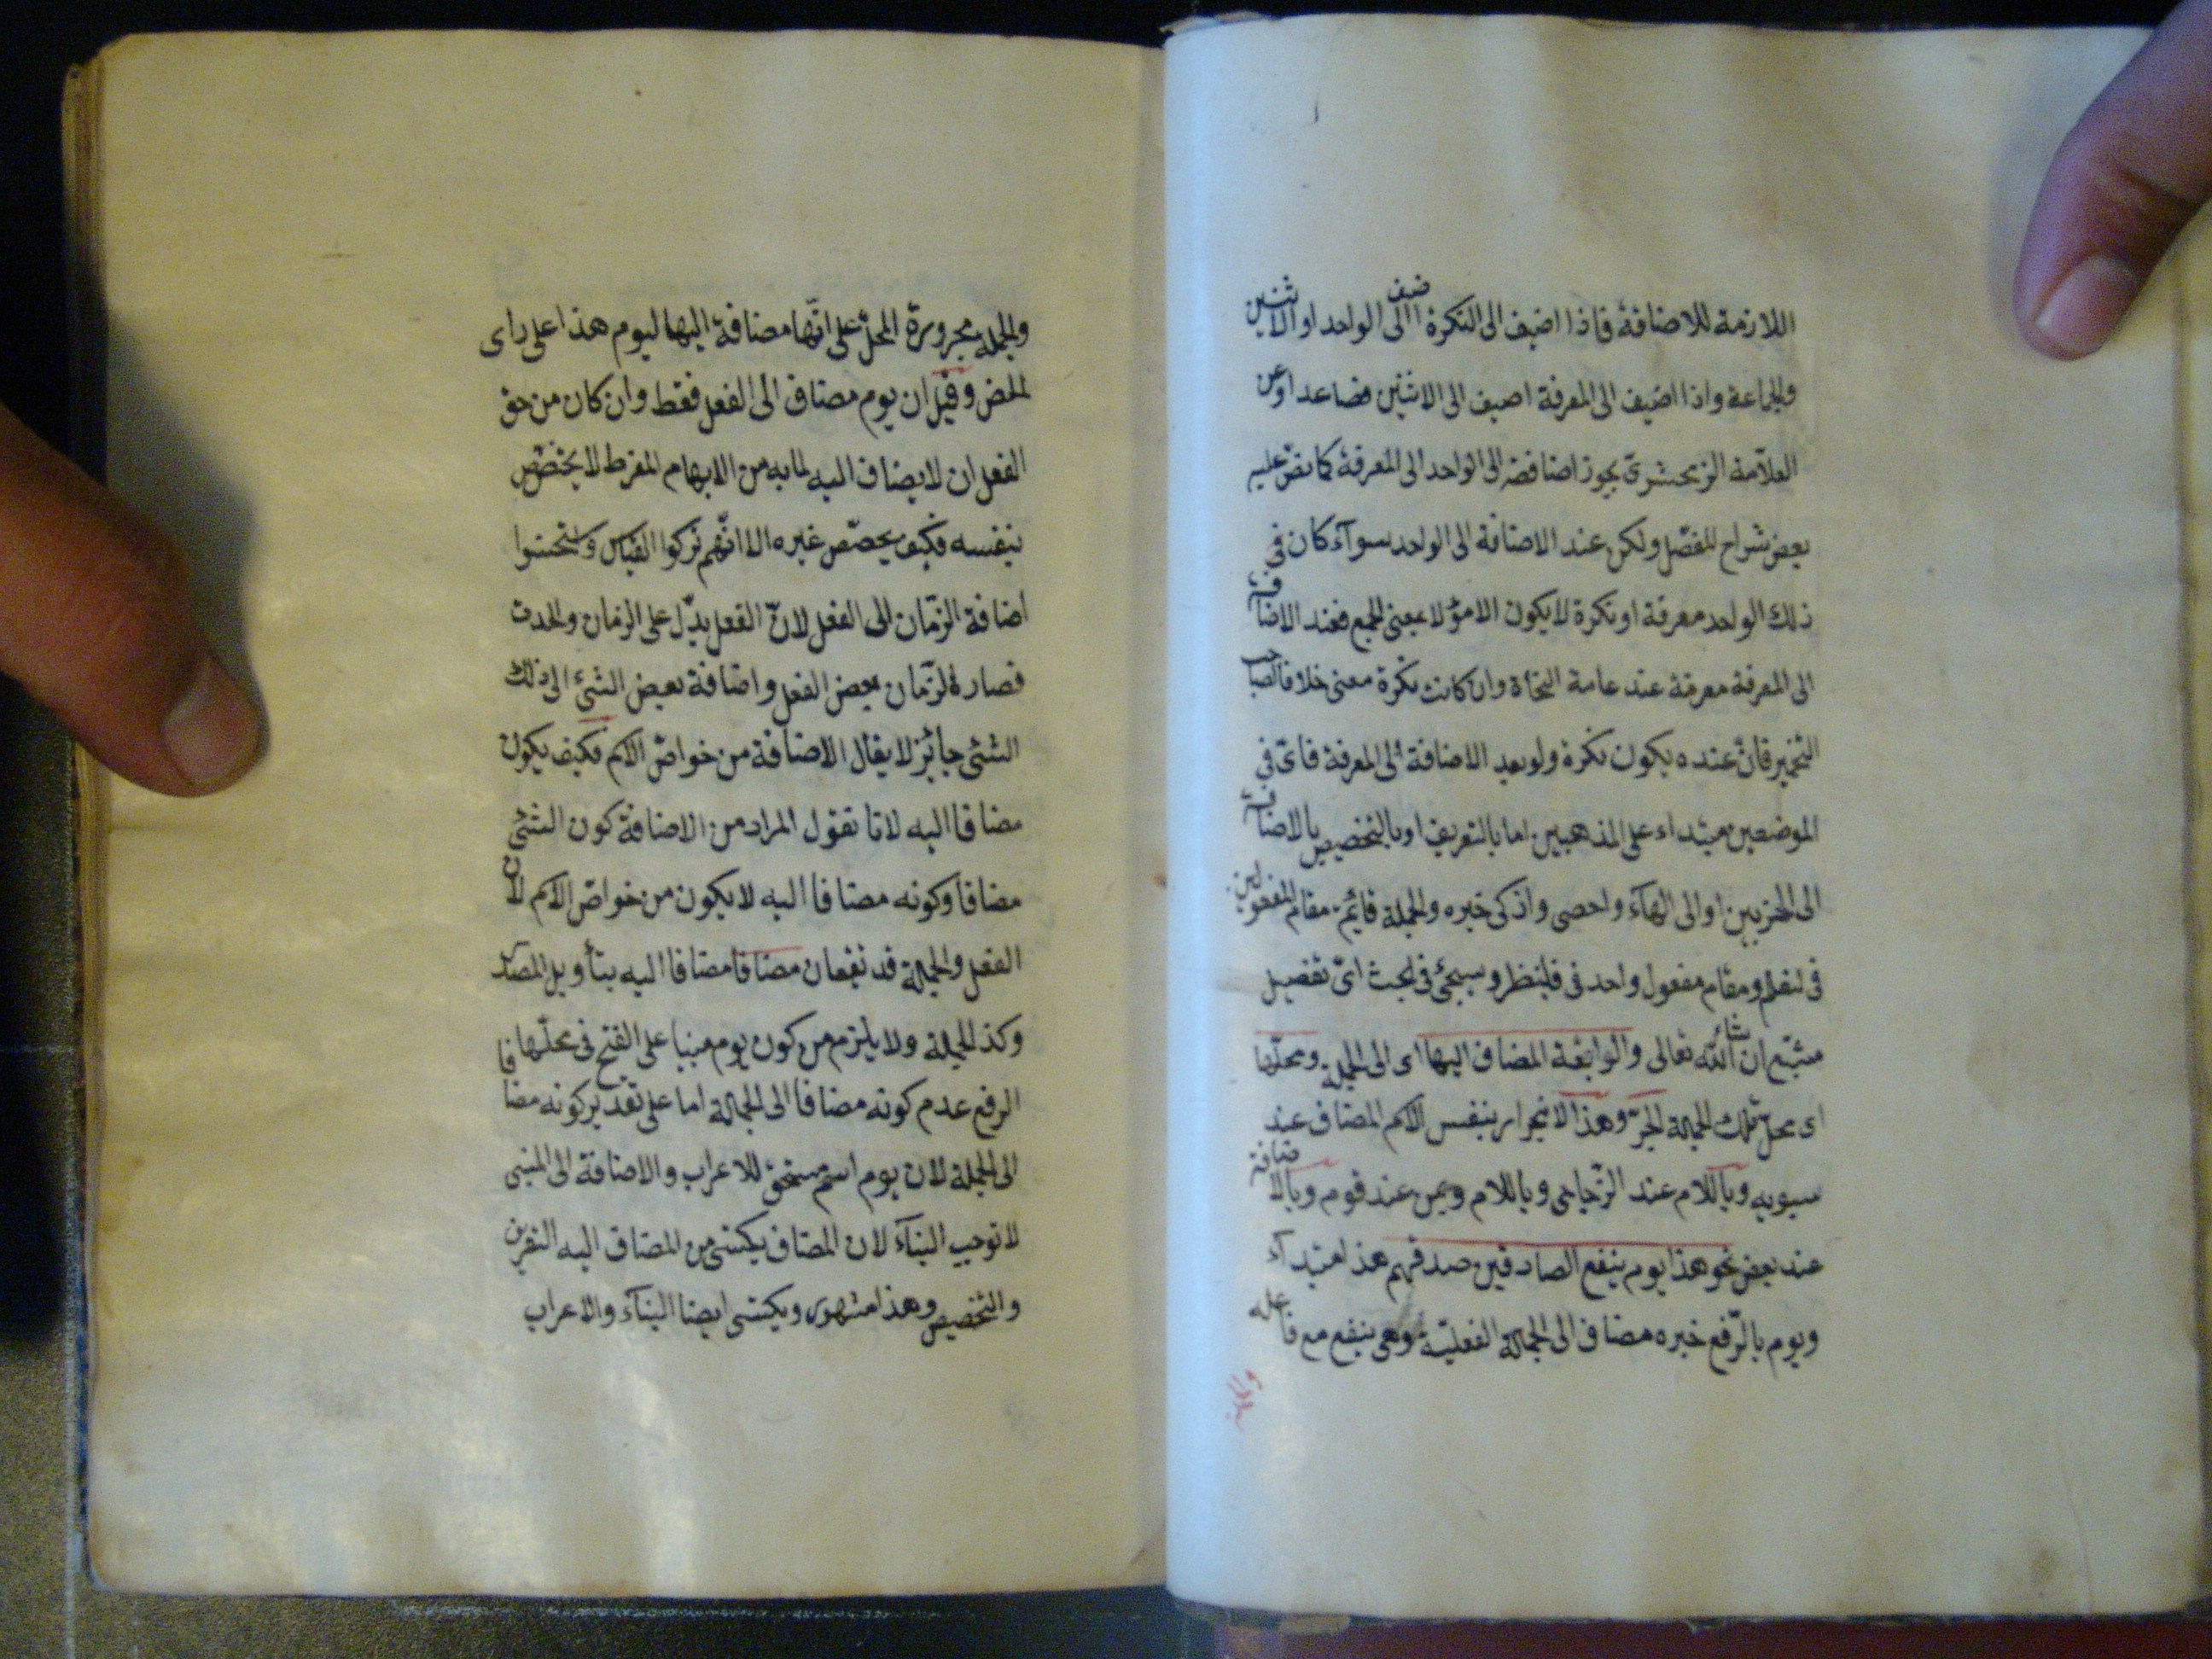 اللازمة للاضافة فاذا اضيف الى النكرة اضيف الى الواحد او الاثنين
والجماعة واذا اضيف الى المعرفة اضيف الى الاثنين فصاعدا وعن
العلّامة الزمخشرى يجوز اضافته الى الواحد الى المعرفة كما نصّ عليه
بعض شراح المفصّل ولكن عند الاضافة الى الواحد سوآء كان فى
ذلك الواحد معرفة او نكرة لا يكون الا مؤلا بمعنى الجمع فعند الاضافة
الى المعرفة معرفة عند عامة النحاة وان كانت نكرة معنى خلافا لصاحب
التخمير فانّ عنده يكون نكرة ولو بعد الاضافة الى المعرفة فاىّ فى
الموضعين مبتداء على المذهبين اما بالتعريف او بالتخصيص بالاضافة
الى الحزبين او الى الهآء واحصى واذكى خبره والجملة قائم مقام المفعولين
فى لنعلم ومقام مفعول واحد فى فلينظر وسيجئ فى بحث اىّ تفصيل
مشبّع ان شاء الله تعالى والرابعة المضاف اليها اى الى الجملة ومحلّها
اى محلّ تلك الجملة الجرّ وهذا الانجرار بنفس الاسم المضاف عند
سيبويه وباللام عند الزّجاجى وباللام وبمن عند قوم وبالاضافة
عند بعض نحو هذا يوم ينفع الصادقين صدقهم هذا مبتداء
ويوم بالرّفع خبره مضاف الى الجملة الفعليّة وهى ينفع مع فاعله
والجملة مجرورة المحلّ على انّها مضافة اليها ليوم هذا على راى
لمحض وقيل ان يوم مضاف الى الفعل فقط وان كان من حق
الفعل ان لا يضاف اليه لما به من الابهام المفرط لا يختصّص
بنفسه فكيف يخصّص غيره الا انّهم تركوا القياس واستحسنوا
اضافة الزّمان الى الفعل لانّ الفعل يدّل على الزمان والحدث
فصار الزّمان بعض الفعل واضافة بعض الشئ الى ذلك
الشئ جائز لا يقال الاضافة من خواصّ الاسم فكيف يكون
مضافا اليه لانا نقول المراد من الاضافة كون الشئ
مضافا وكونه مضافا اليه لا يكون من خواصّ الاسم لان
الفعل والجملة قد تقعان مضافا مضافا اليه بتأويل المصدر
وكذ الجملة ولا يلزم من كون يوم مبنيا على الفتح فى محلّها
الرفع عدم كونه مضافا الى الجملة اما على تقدير كونه مضافا
الى الجملة لان يوم اسم مستحق للاعراب والاضافة الى المبنى
لا توجب البنآء لان المضاف يكتسى من المضاف اليه التعريف
والتخصيص وهذا مشهور ويكتسى ايضا البنآء والاعراب